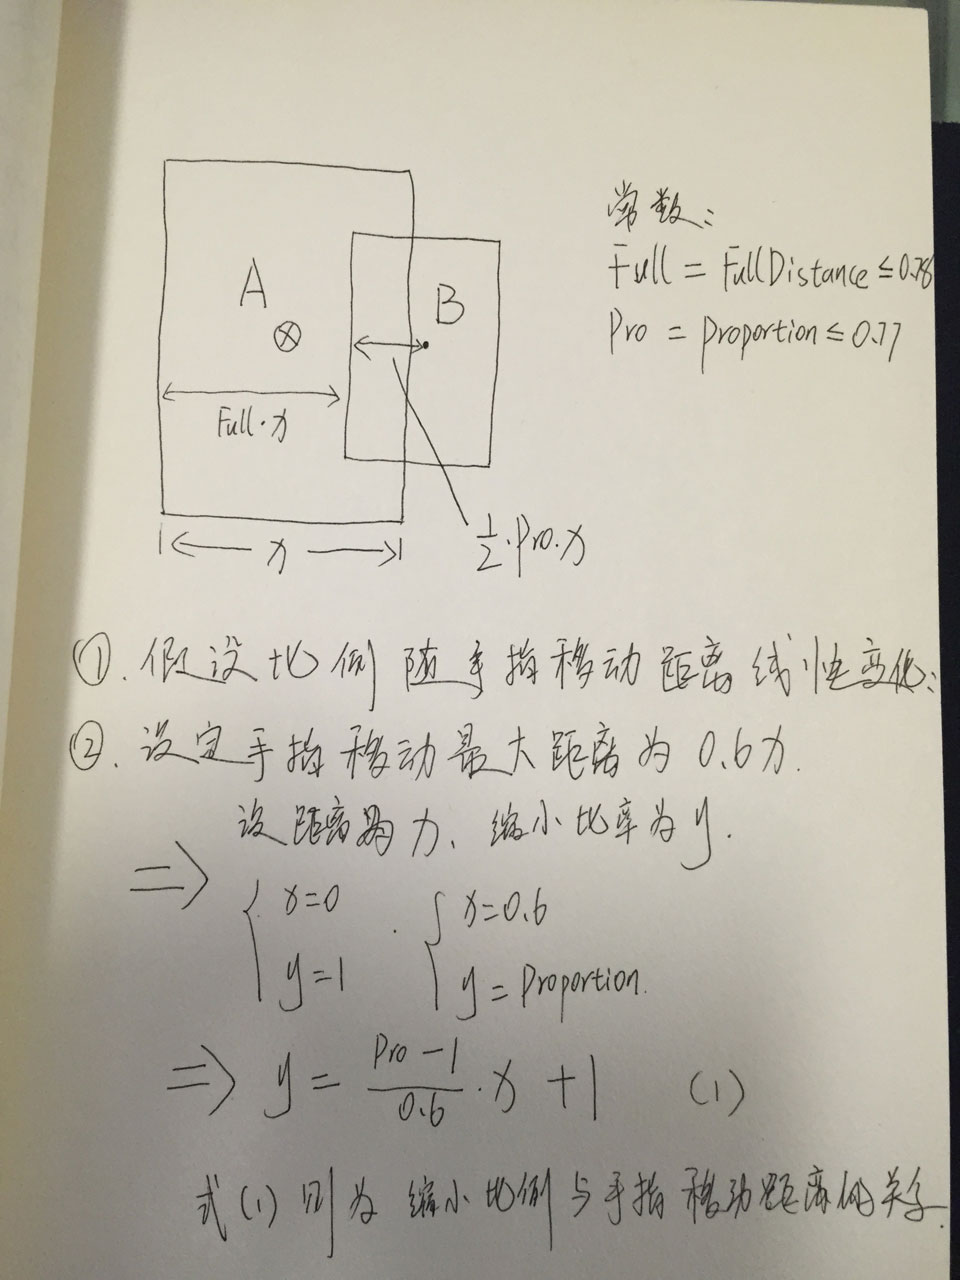 常数：
Full = FullDistance ≤ 0.78
Pro = Proportion ≤ 0.77
A
B
Full·x
x
1/2·Pro·x
①. 假设比例随手指移动距离线性变化：
②. 设定手指移动最大距离为 0.6x.
设距离为x、缩小比率为y.
⇒ { x=0 . { x=0.6
y=1 y=Proportion.
⇒ y = (Pro-1)/0.6 · x + 1 (1)
式(1)则为缩小比例与手指移动距离的关系.